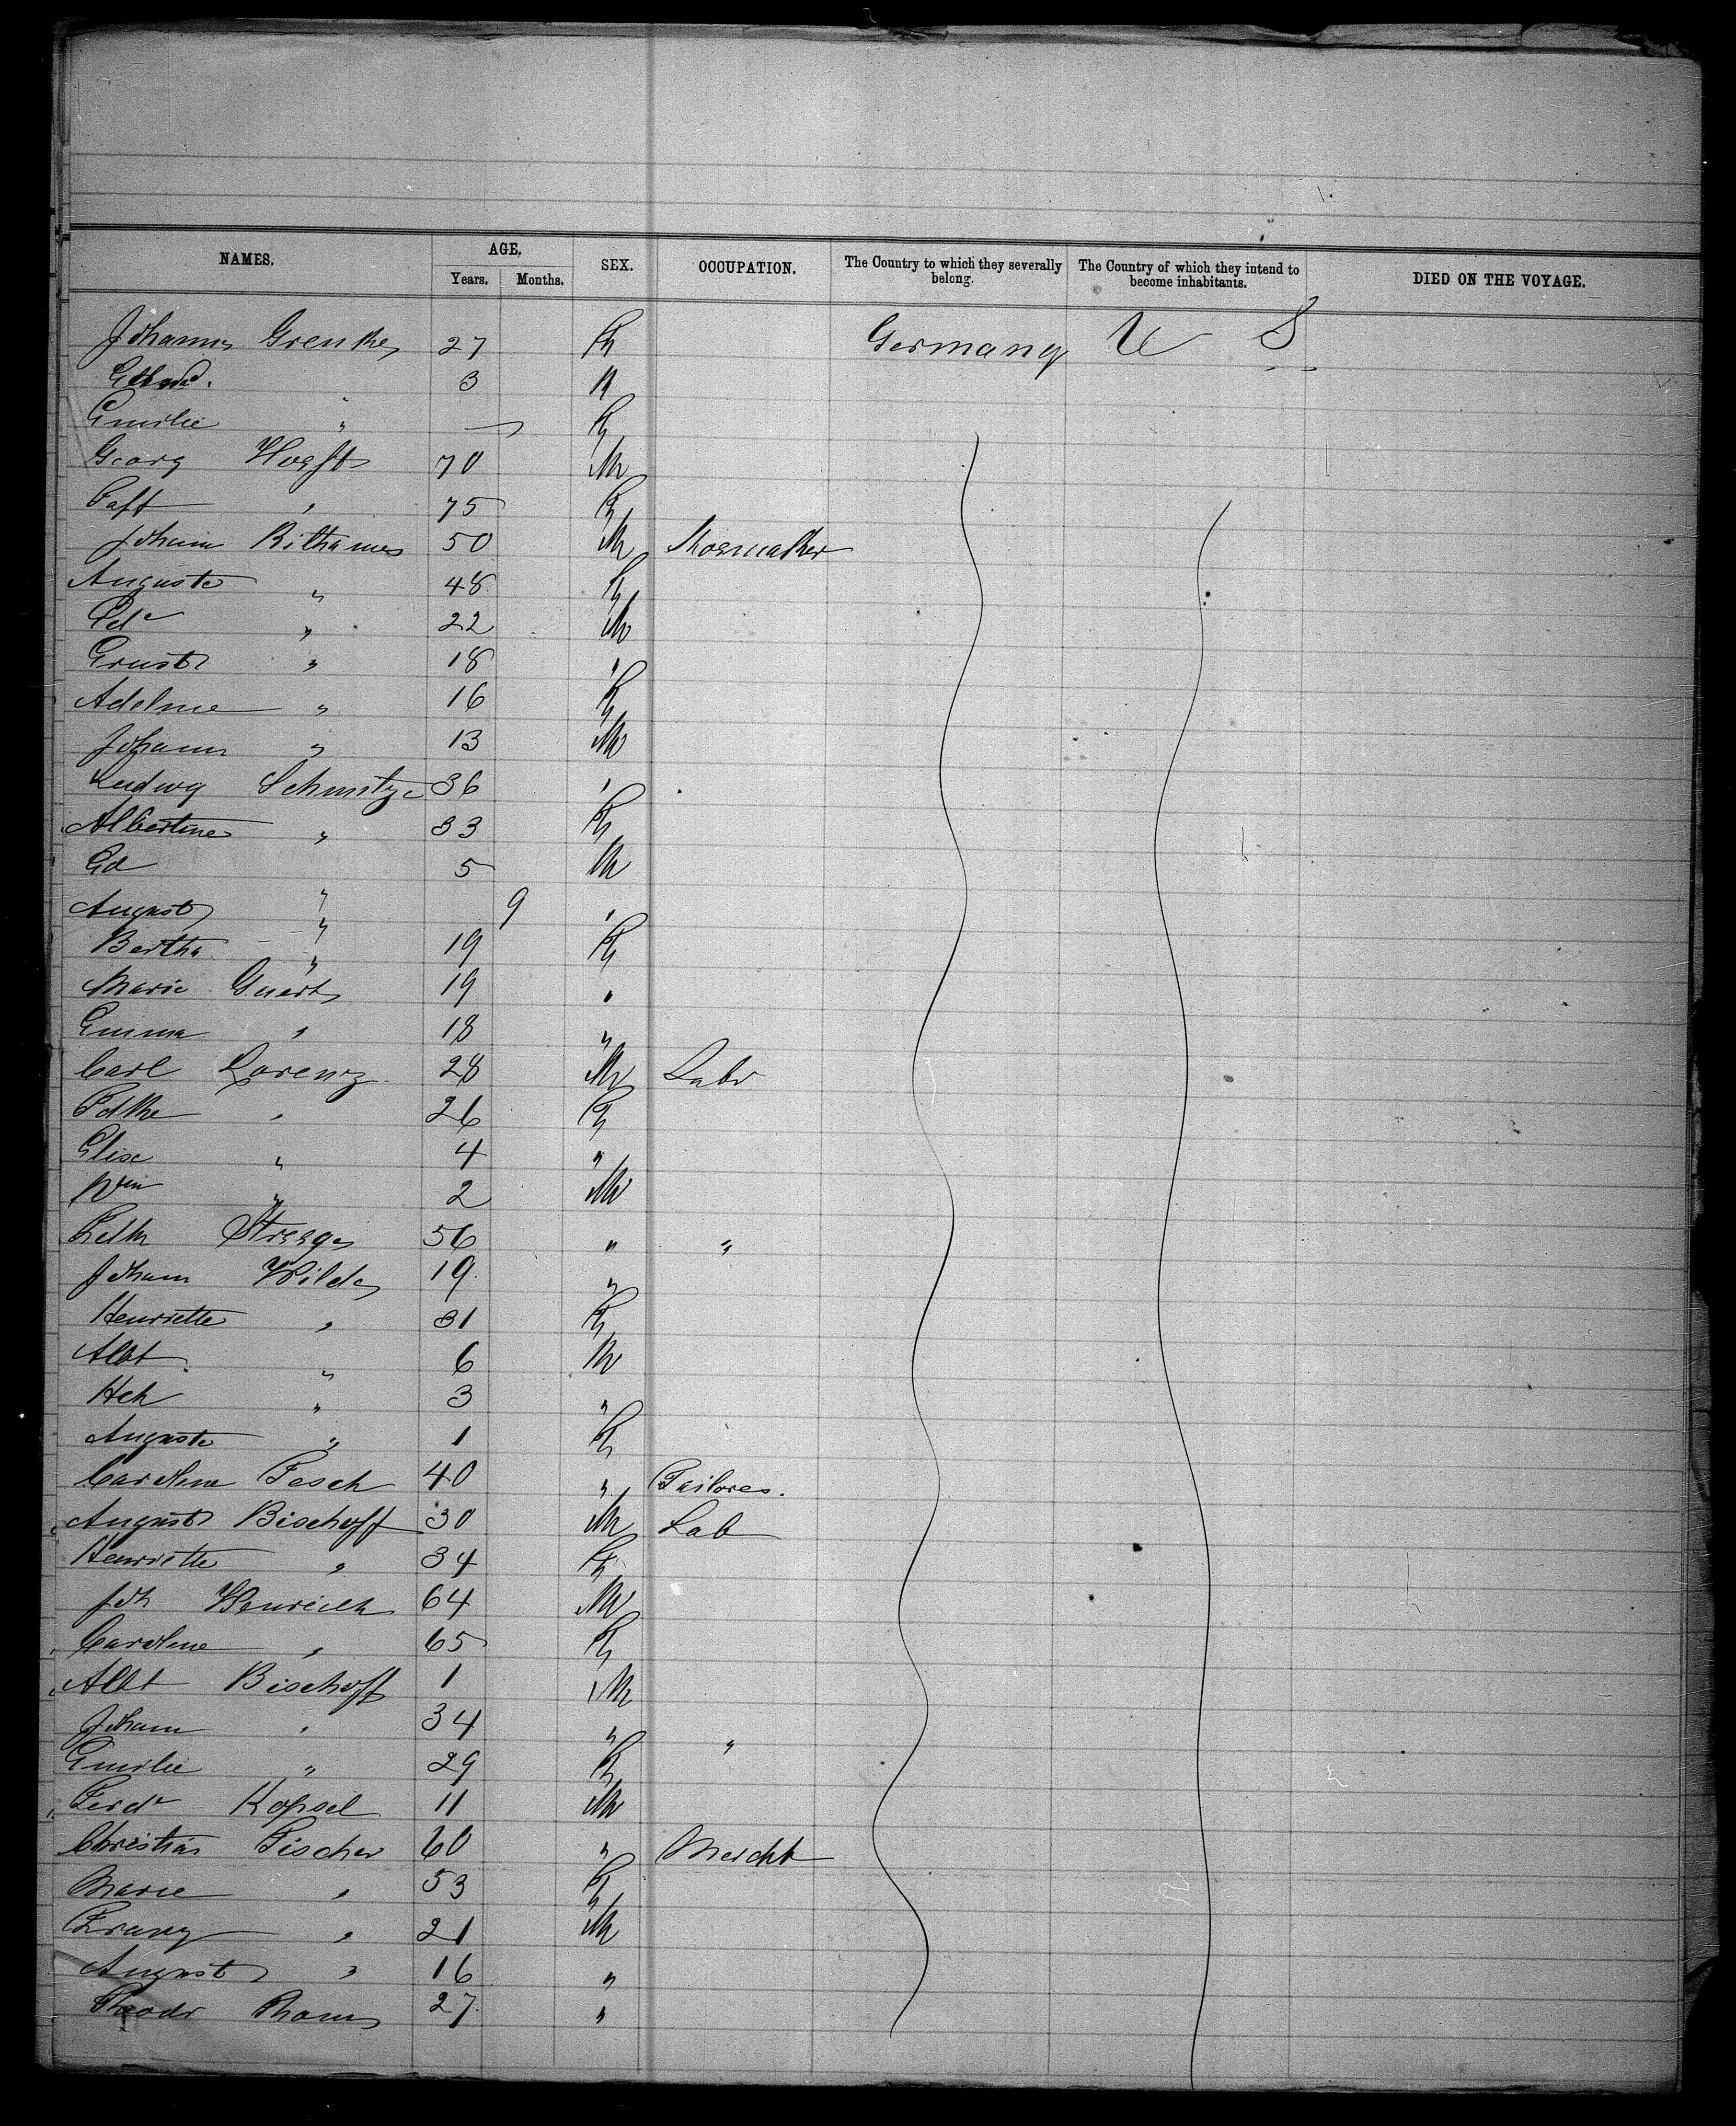 NAMES. AGE. SEX. OCCUPATION. The Country to which they severally belong. The Country of which they intend to become inhabitants. DIED ON THE VOYAGE.
Years. Months.
Grenke 27 Germany U S
3
Emilie "
Georg 70 M
75
Johann 50 M Shoemaker
Auguste " 48
22 M
Ernst " 18 "
" 16
Johann " 13 M
Ludwig 36 "
Albertine " 33
Ed 5 M
August " 9 "
Bertha " 19
Marie 19 "
Emma " 18 "
Carl Lorenz 28 M Labr
" 26
Elise " 4 "
Wm " 2 M
56 " "
Johann Wilde 19 "
Henriette " 31
Albt " 6 M
Hch " 3 "
Auguste " 1
Caroline Tesch 40 " Tailores.
August Bischoff 30 M Lab
Henriette " 34
Joh 64 M
Caroline " 65
Albt Bischoff 1 M
Johann " 34 " "
Emilie " 29
Ferdr Kopsel 11 M
Christian Fischer 60 " Mercht
Marie " 53
Franz " 21 M
August " 16 "
Theodr 27 "